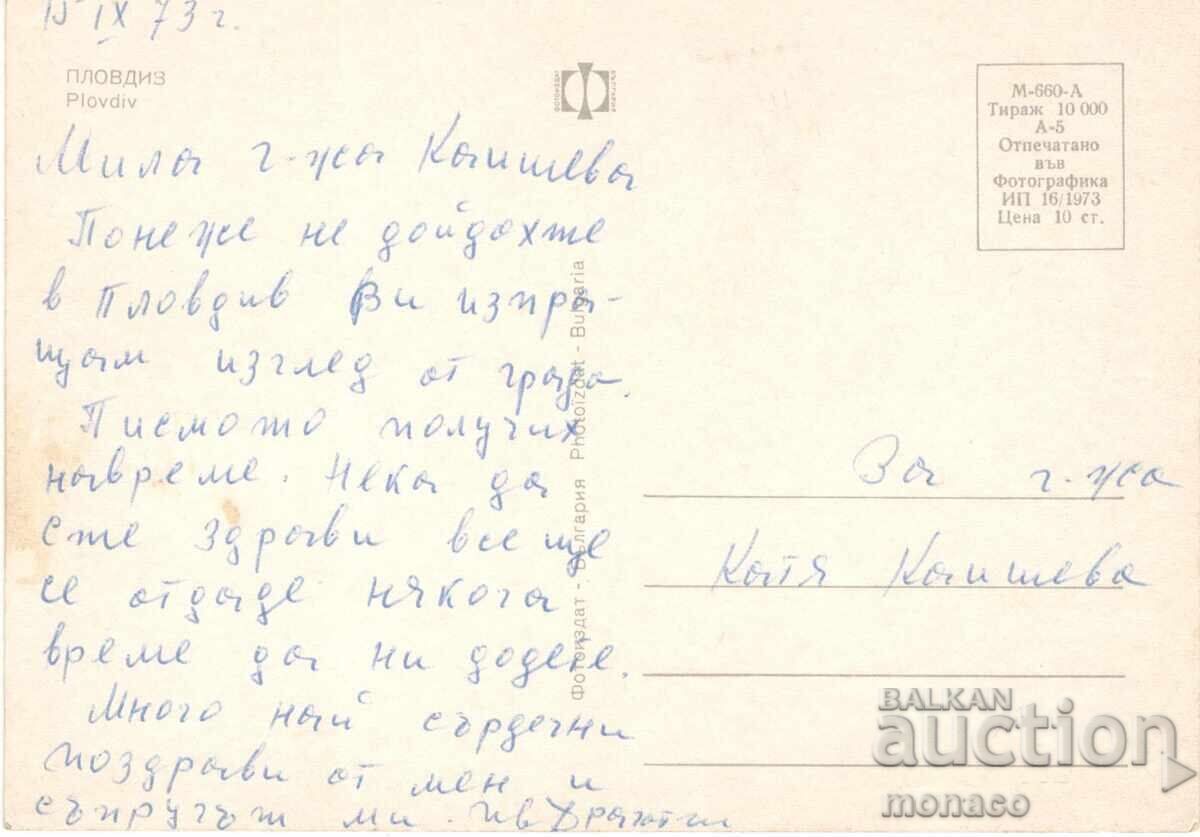 15 IX 73 г.
ПЛОВДИВ
Plovdiv
Мила г-жа Каишева
Понеже не дойдохте
в Пловдив Ви изпра-
щам изглед от града.
Писмото получих
навреме. Нека да
сте здрави все ще
се отдаде някога
време да ни додете.
Много най сърдечни
поздрави от мен и
съпругът ми. Ив
Фотоиздат - България Photoizdat - Bulgaria
М-660-А
Тираж 10 000
А-5
Отпечатано
във
Фотографика
ИП 16/1973
Цена 10 ст.
За г-жа
Катя Каишева
BALKAN
auction
monaco